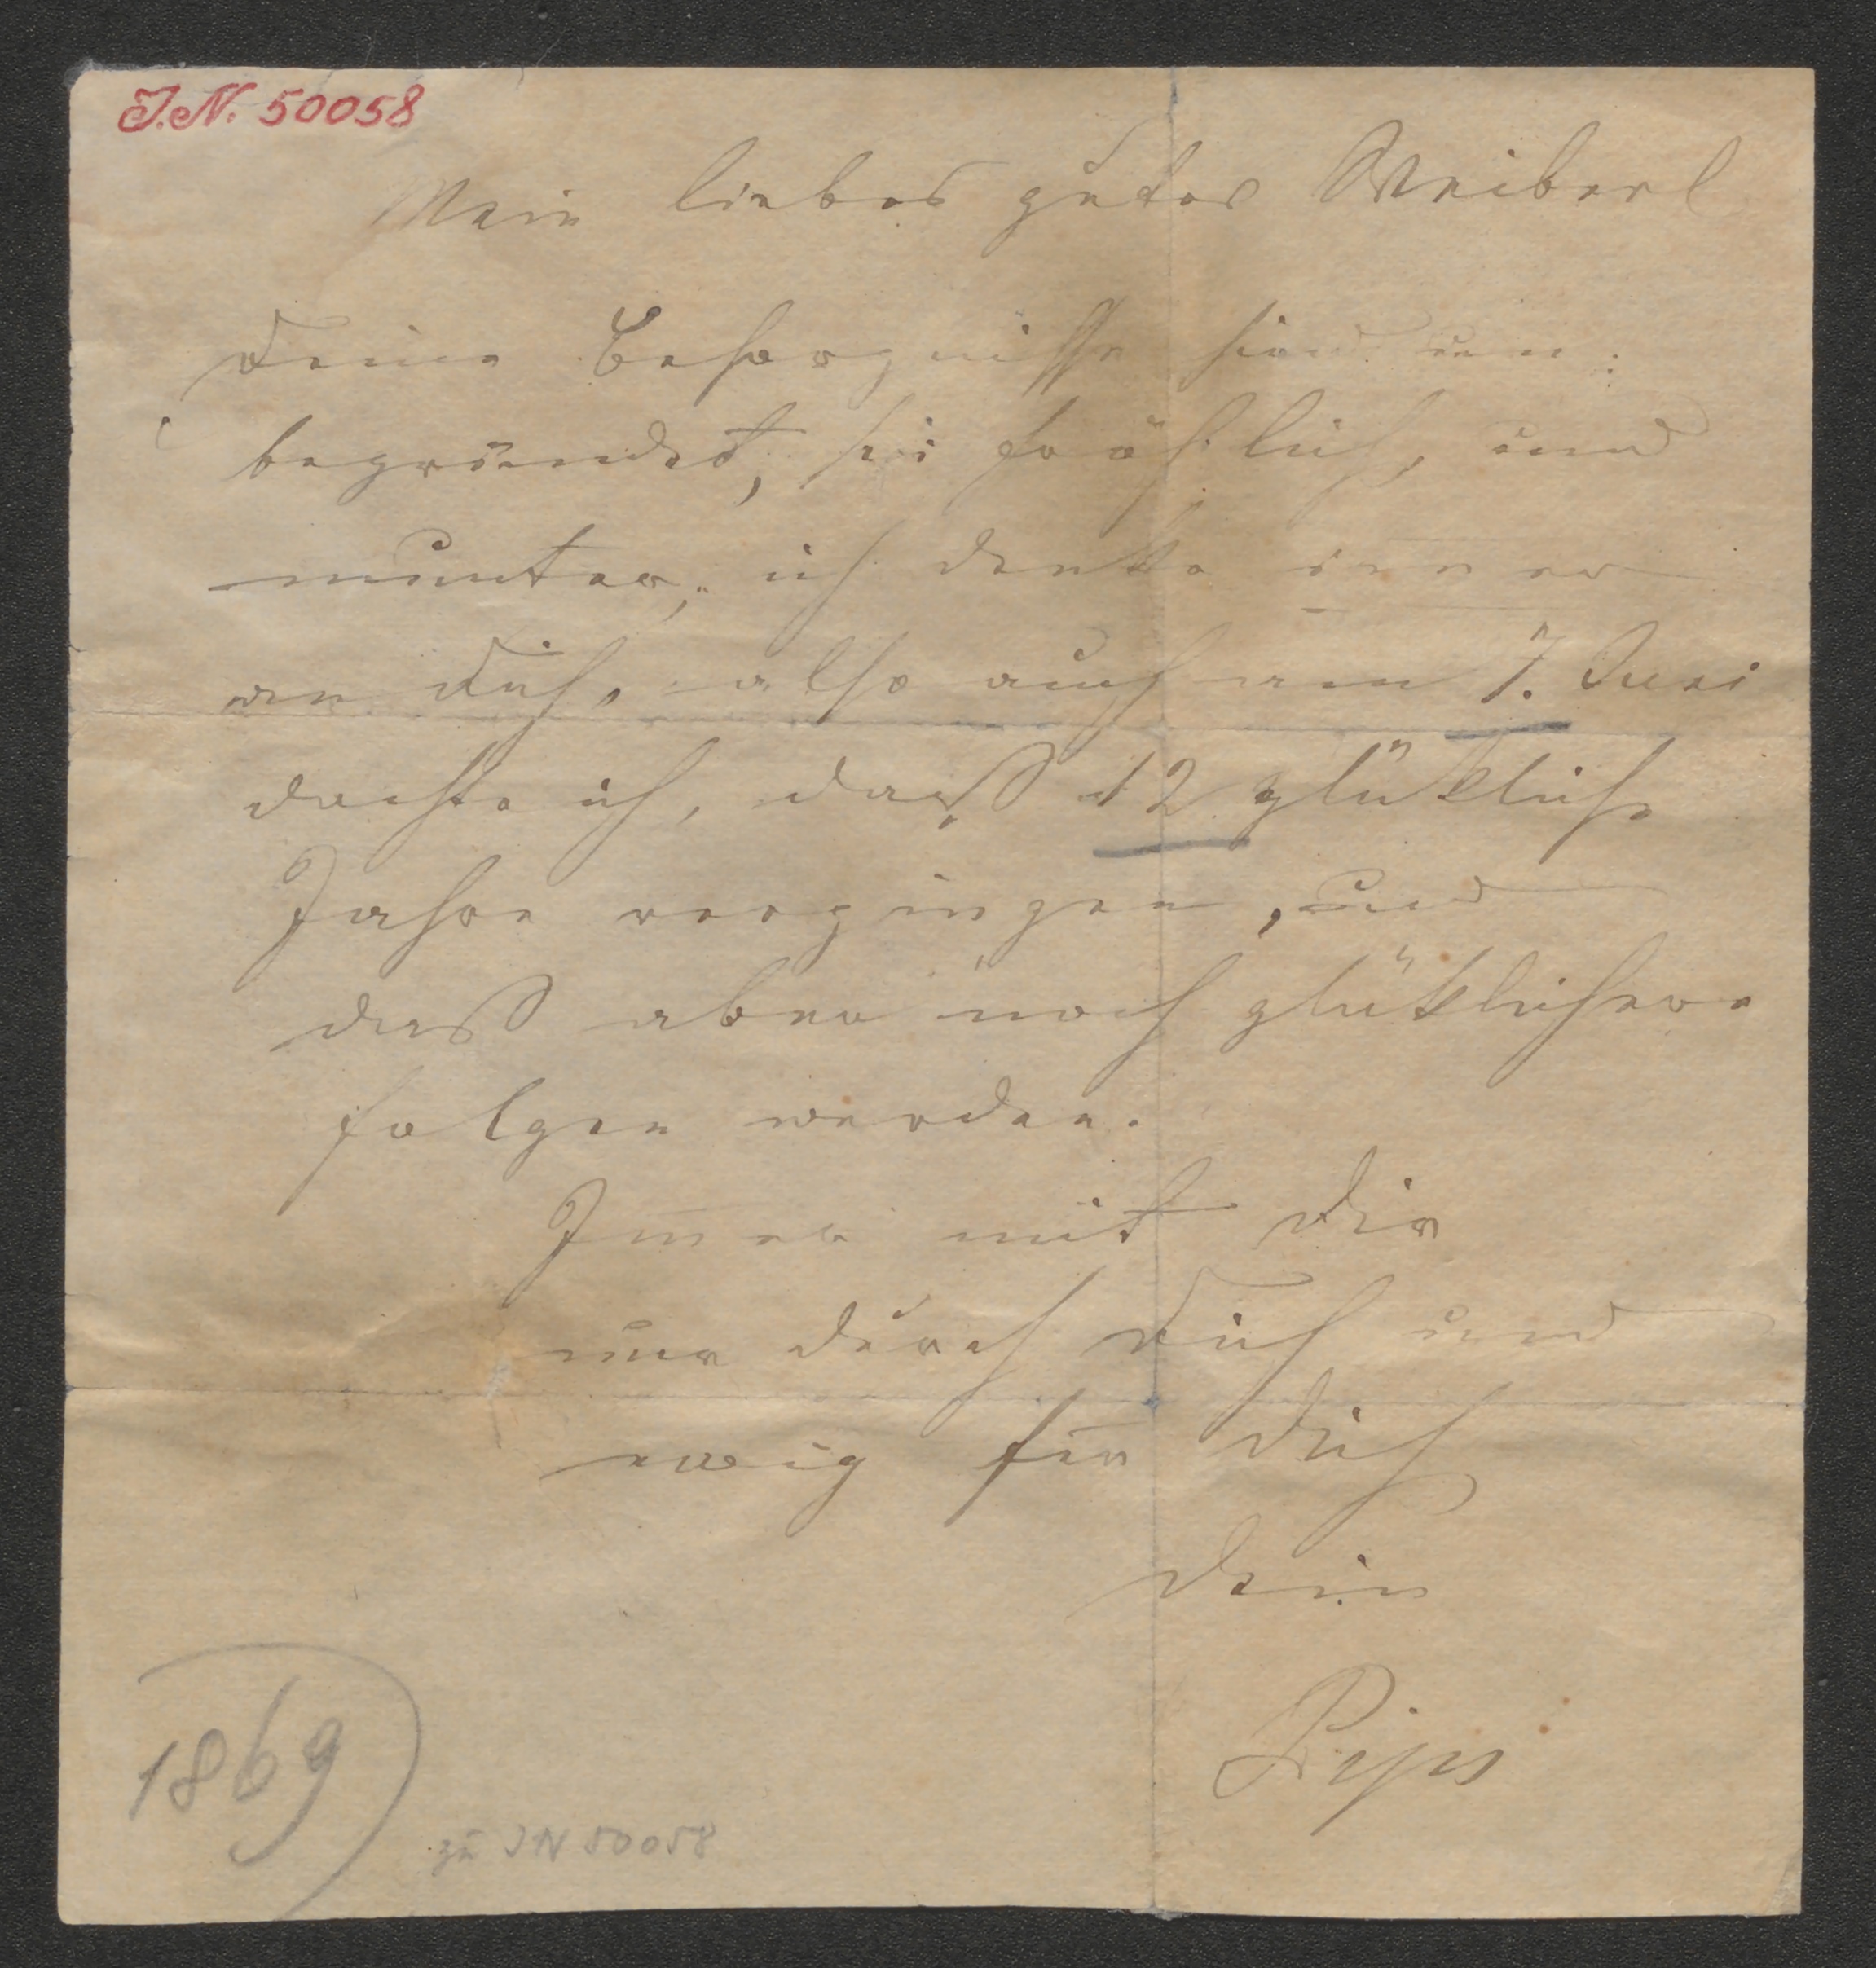 J.N. 50058
Mein liebes gutes Weiberl
Deine Besorgnisse sind un:
begründet, sei fröhlich, und
munter, ich denke im̅er
an Dich, also auch am 7. Juni
dachte ich, daß 12 glükliche
Jahre vergingen, und
daß aber noch glüklichere
folgen werden.
Im̅er mit Dir
nur durch Dich und
ewig für Dich
Dein
Pips
1869
zu JN 50058